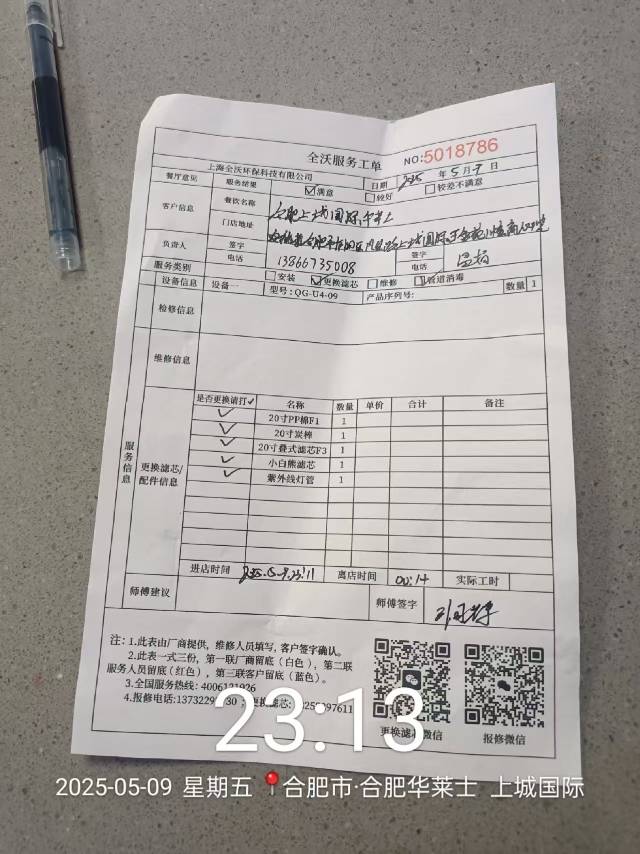 全沃服务工单 NO:5018786
上海全沃环保科技有限公司 日期 2025 年 5 月 9 日
餐厅意见 服务结果 满意 较好 较差不满意
客户信息 餐饮名称 合肥上城国际
门店地址 上城国际
负责人 签字 签字
电话 13866735008 电话
服务类别 安装 更换滤芯 维修 管道消毒
设备信息 设备一 型号:QG-U4-09 产品序列号: 数量 1
检修信息
维修信息
服务信息
更换滤芯/配件信息
是否更换请打✓ 名称 数量 单价 合计 备注
✓ 20寸PP棉F1 1
✓ 20寸炭棒 1
✓ 20寸叠式滤芯F3 1
✓ 小白熊滤芯 1
✓ 紫外线灯管 1
进店时间 离店时间 00:14 实际工时
师傅建议 师傅签字
注:1.此表由厂商提供,维修人员填写,客户签字确认。
2.此表一式三份,第一联厂商留底(白色),第二联
服务人员留底(红色),第三联客户留底(蓝色)。
3.全国服务热线:
4.报修电话: 更换滤芯:
更换滤芯微信 报修微信
23:13
2025-05-09 星期五 合肥市·合肥华莱士 上城国际